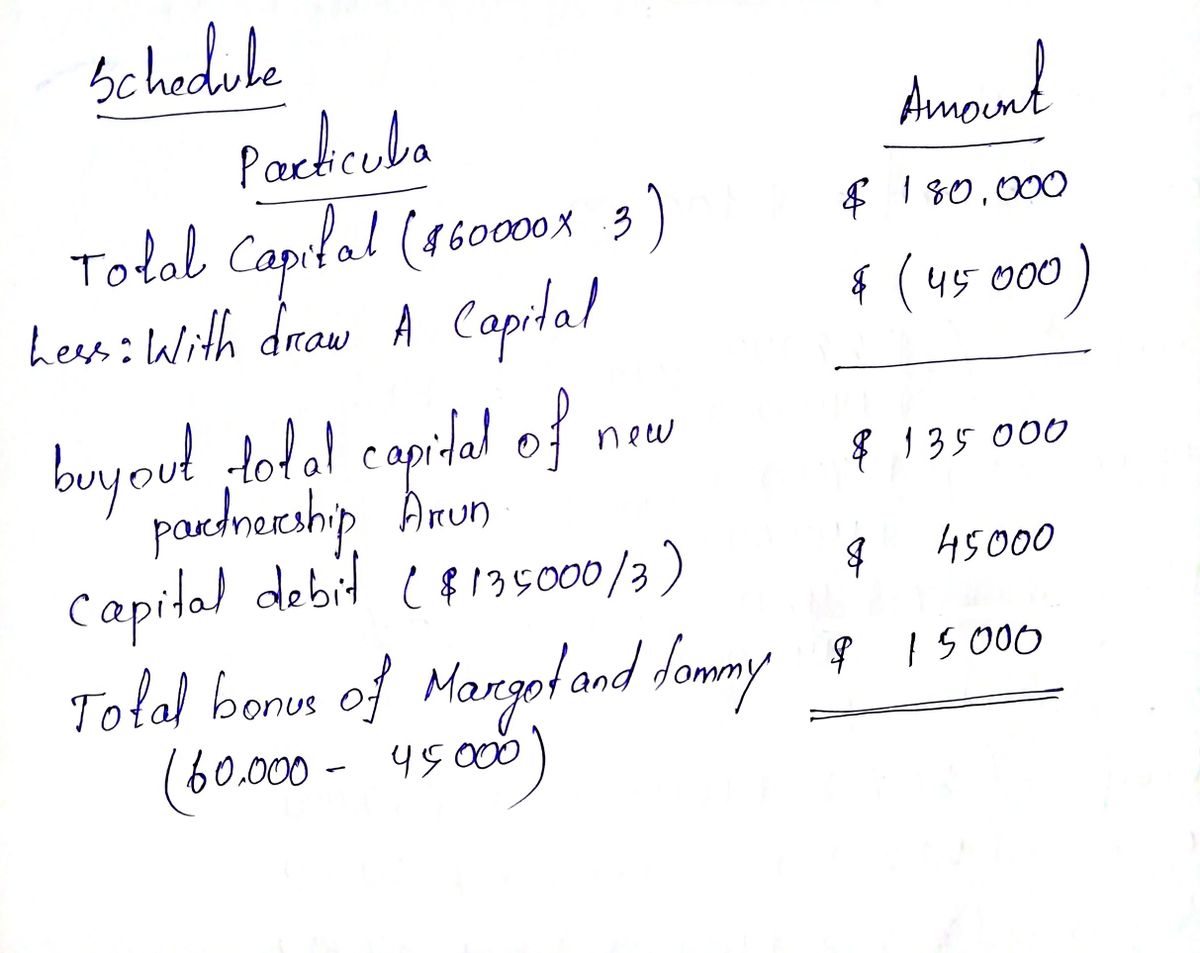 Schedule
Particula Amount
Total Capital ($60000x 3) $ 180,000
Less: With draw A Capital $ (45 000)
buyout total capital of new $ 135 000
partnership Arun
Capital debit ($135000/3) $ 45000
Total bonus of Margot and tommy $ 15000
(60,000 - 45 000)